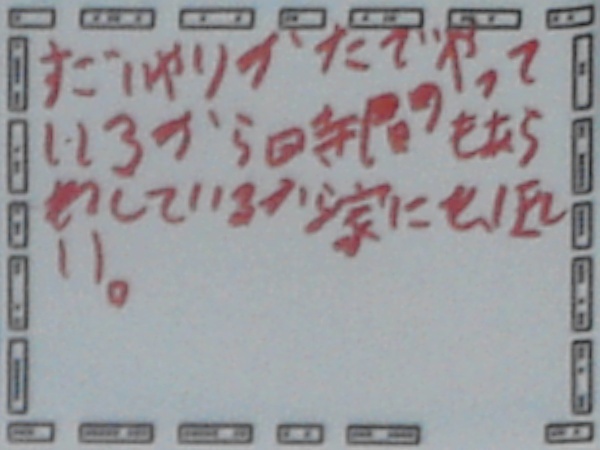 すごいやりかたでやって
いるから時間のもあら
わしているから家にも
い。